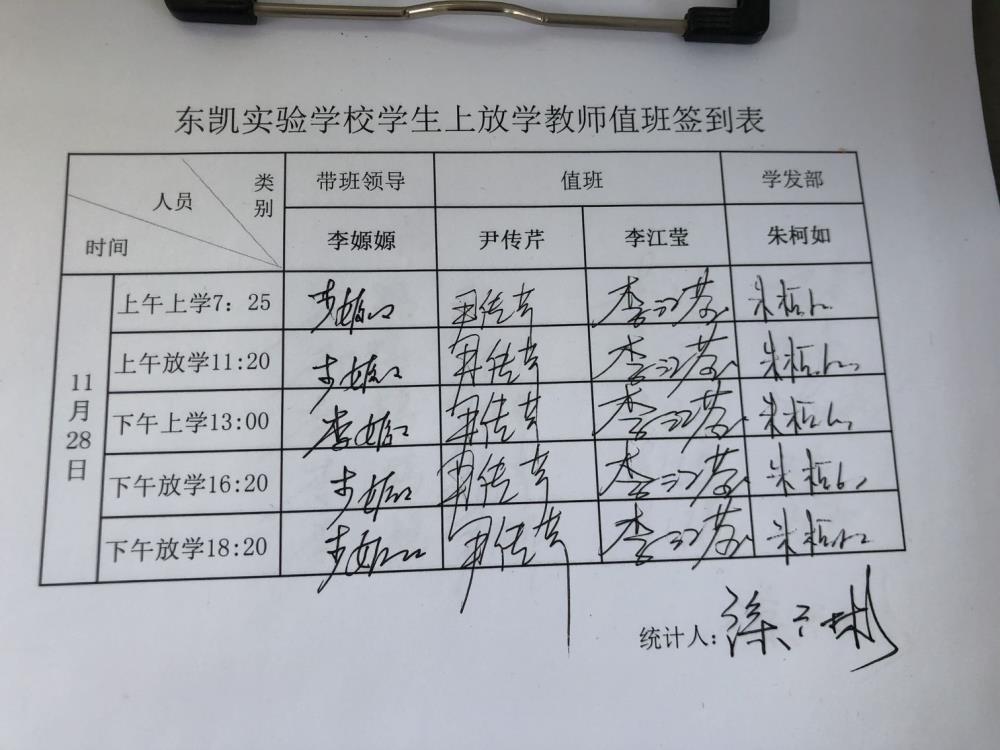 东凯实验学校学生上放学教师值班签到表
类别 人员 时间 带班领导 值班 学发部
李嫄嫄 尹传芹 李江莹 朱柯如
11月28日
上午上学7：25 李嫄嫄 尹传芹 李江莹 朱柯如
上午放学11:20 李嫄嫄 尹传芹 李江莹 朱柯如
下午上学13:00 李嫄嫄 尹传芹 李江莹 朱柯如
下午放学16:20 李嫄嫄 尹传芹 李江莹 朱柯如
下午放学18:20 李嫄嫄 尹传芹 李江莹 朱柯如
统计人：